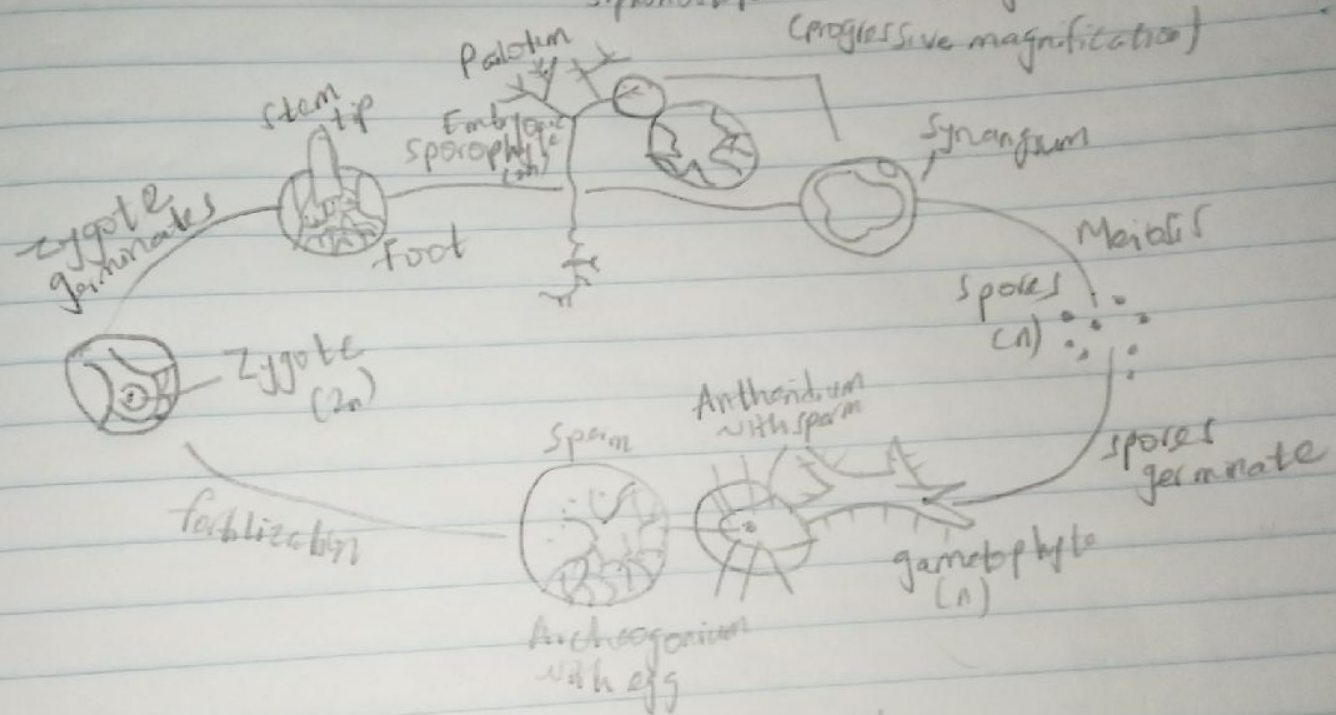 (progressive magnification)
Psilotum
Stem
tip
Embryonic
sporophyte
(2n)
Synangium
Zygote
germinates
Foot
Meiosis
Spores
(n)
Zygote
(2n)
Antheridium
with sperm
Sperm
spores
germinate
fertilization
gametophyte
(n)
Archegonium
with egg